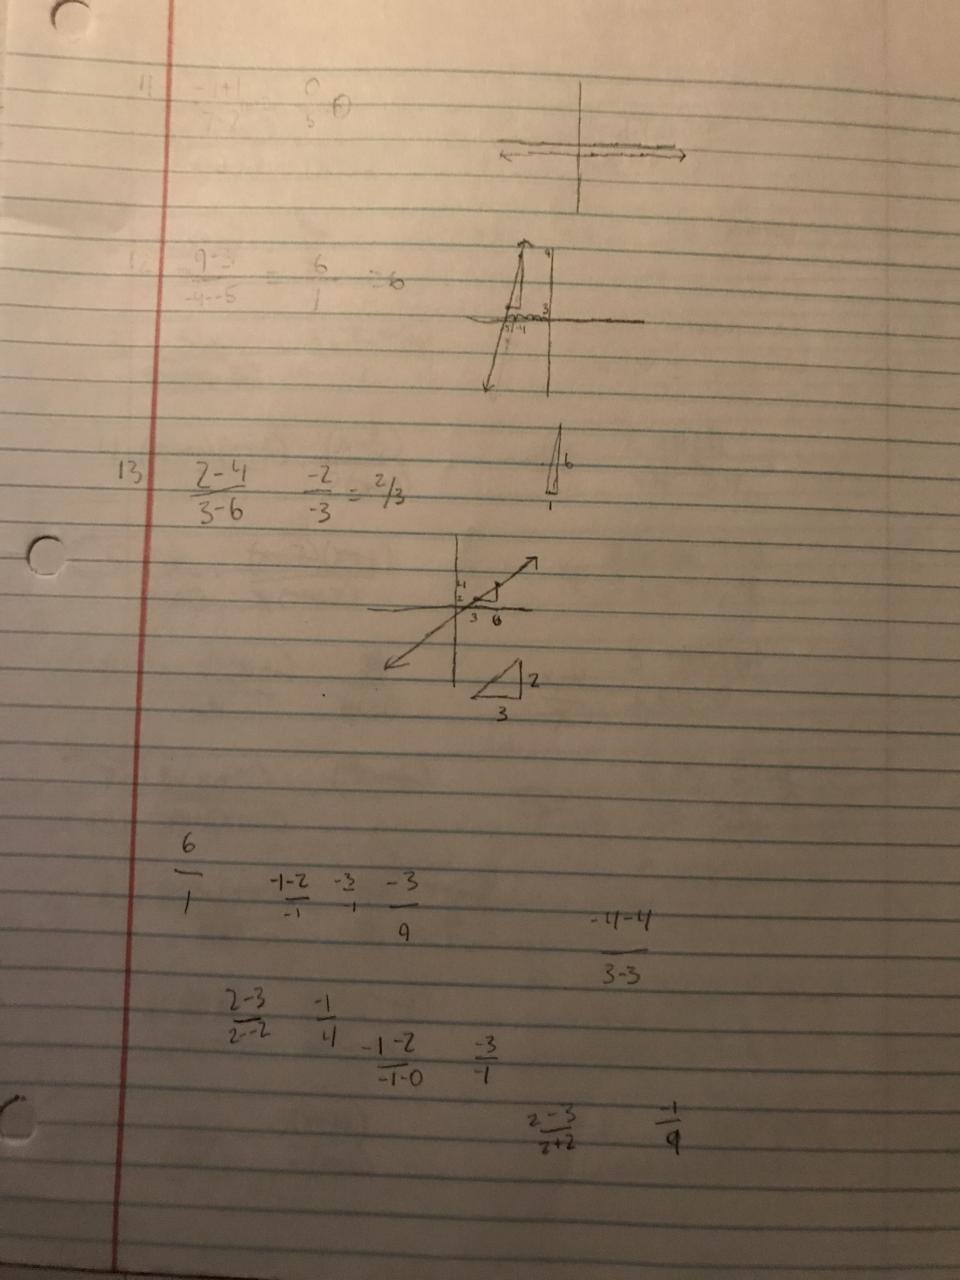 11 -1+1/7-2 = 0/5
12 9-3/-4--5 = 6/1 = 6
9
3
-5 -4
13 2-4/3-6 -2/-3 = 2/3
6
1
4
2
3 6
2
3
6/1 -1-2/-1 -3/-1 -3/9
-4-4/3-3
2-3/2--2 -1/4
-1-2/-1-0 -3/-1
2-3/2+2 -1/9